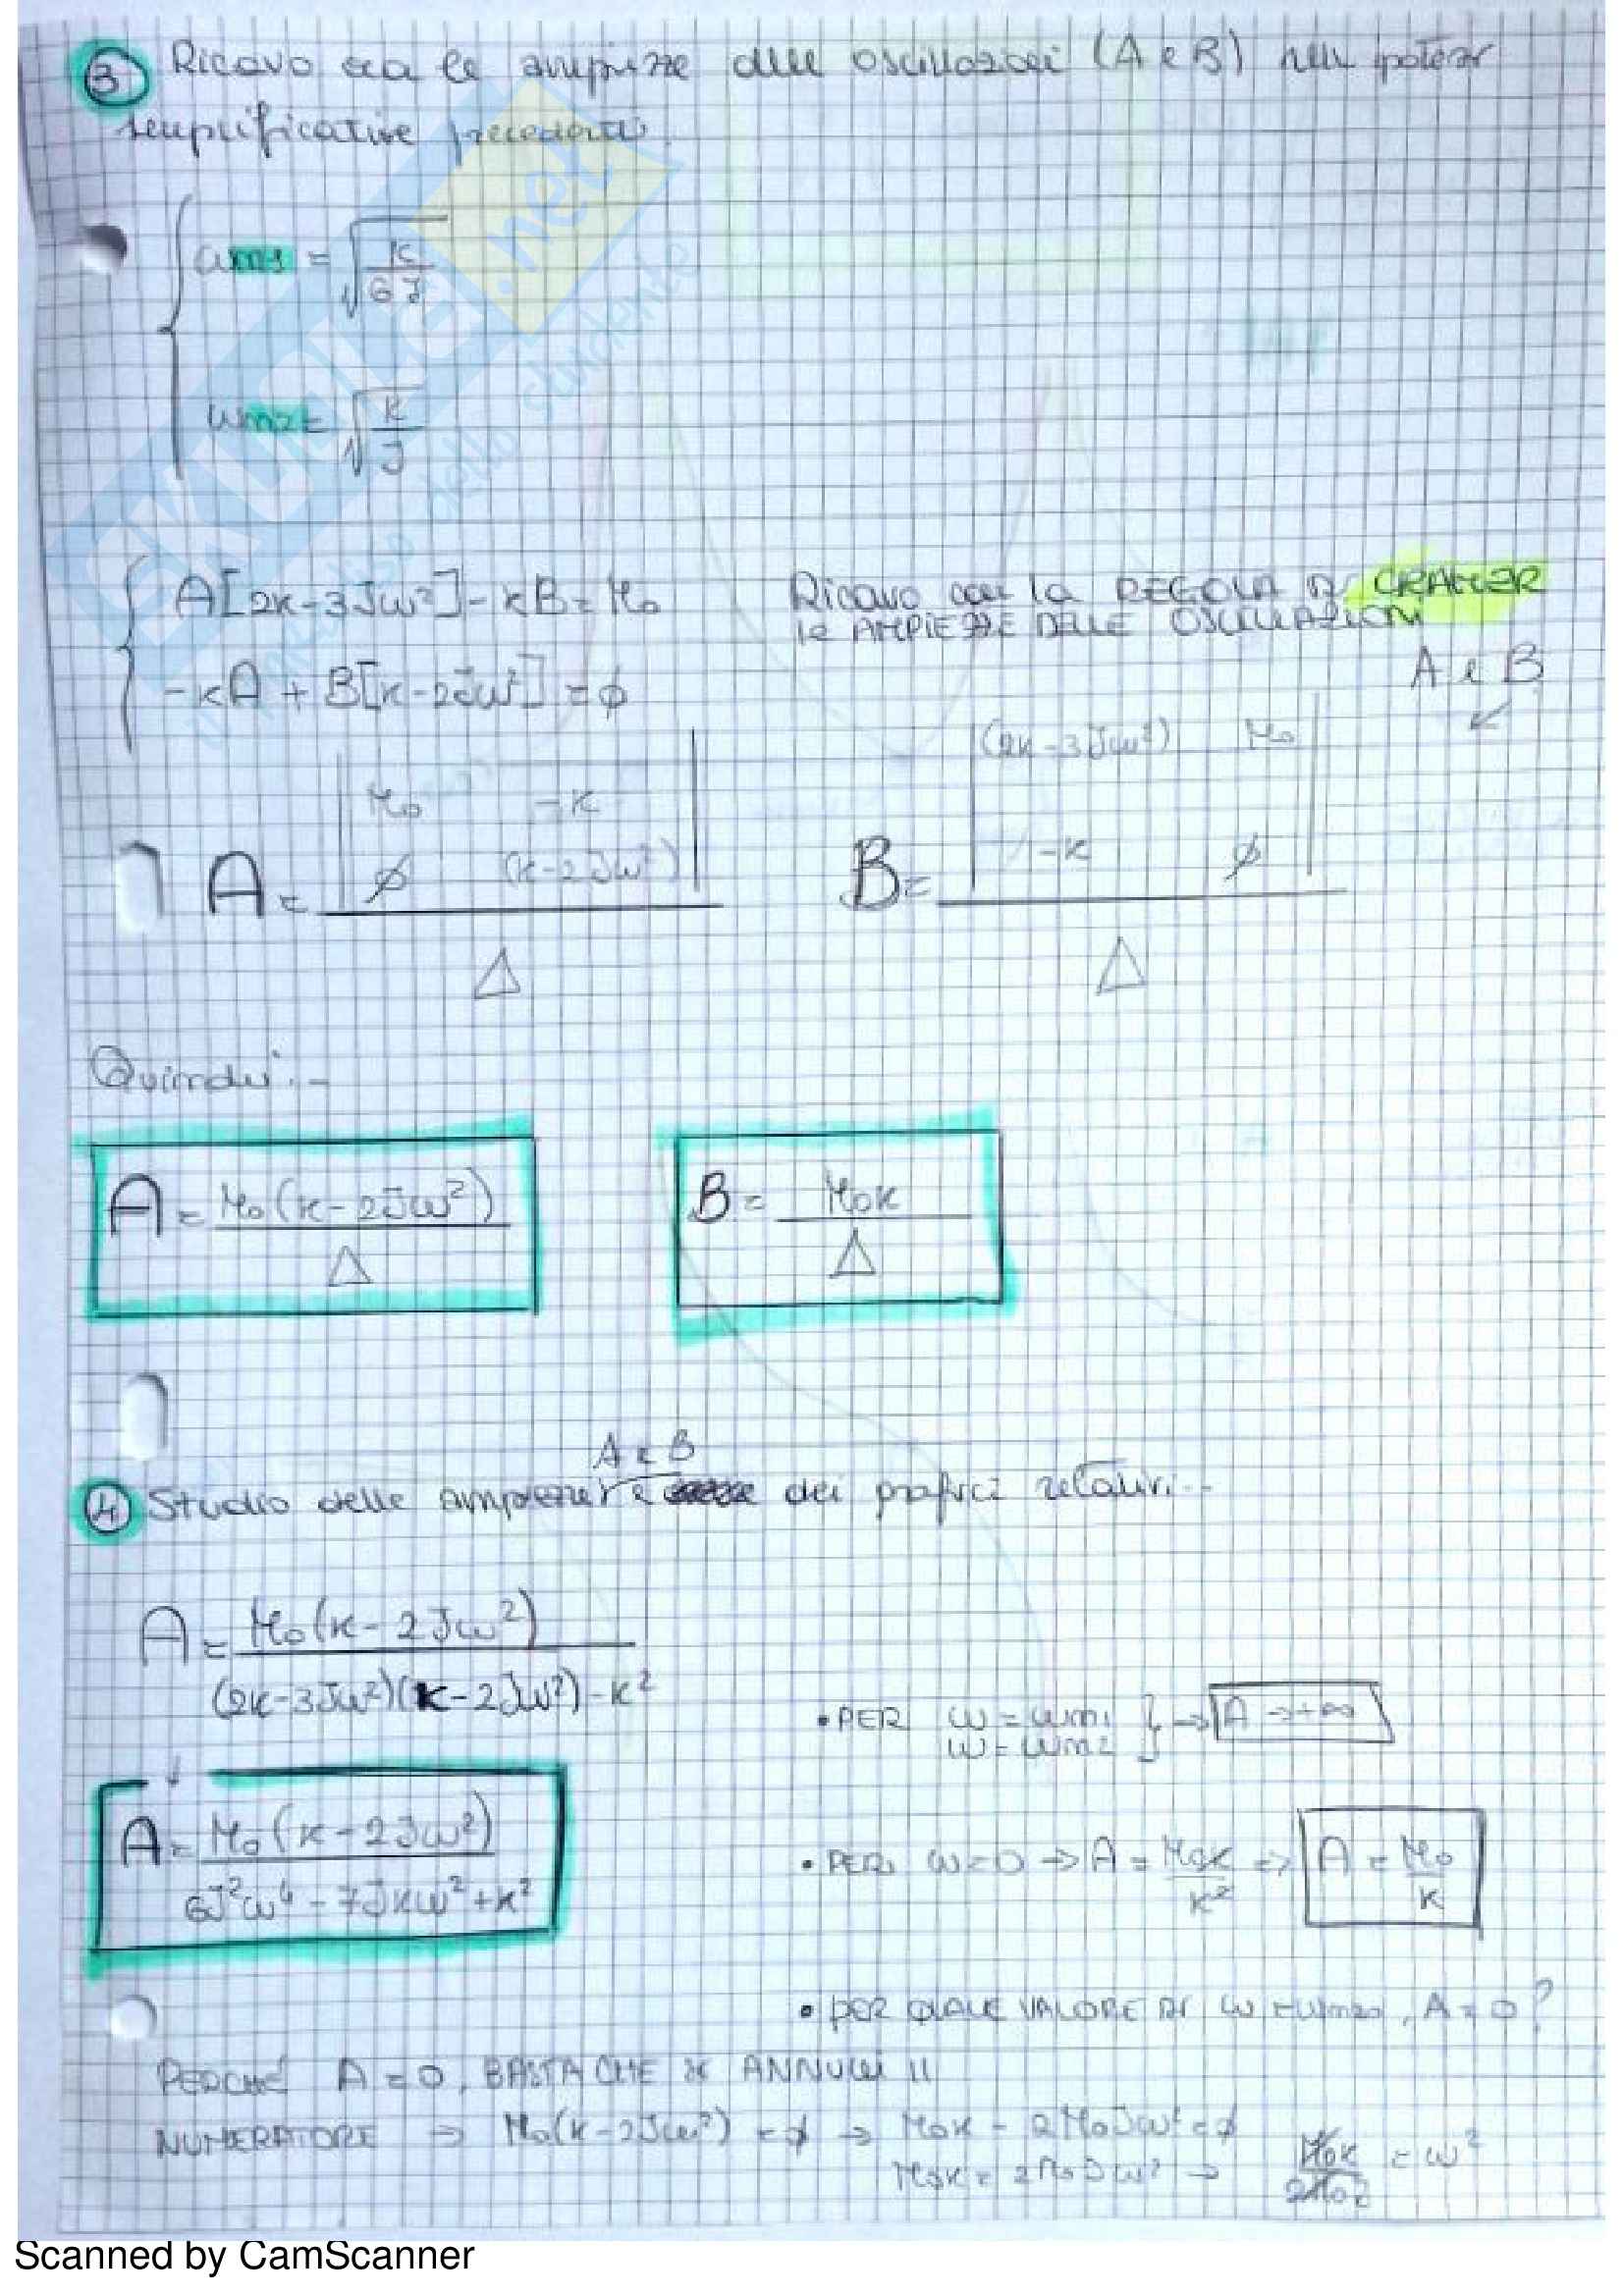 3 Ricavo ora le ampiezze delle oscillazioni (A e B) nelle ipotesi
semplificative precedenti
ωn1 = √(k/6J)
ωn2 = √(k/J)
A[2k-3Jω²]-kB=M₀
-kA + B[k-2Jω²] = ∅
Ricavo con la REGOLA DI CRAMER
le AMPIEZZE DELLE OSCILLAZIONI
A e B
A = |M₀ -k; ∅ (k-2Jω²)| / Δ
B = |(2k-3Jω²) M₀; -k ∅| / Δ
Quindi:-
A = M₀(k-2Jω²) / Δ
B = M₀k / Δ
A e B
4 Studio delle ampiezze e dei grafici relativi:-
A = M₀(k-2Jω²) / (2k-3Jω²)(k-2Jω²)-k²
• PER ω = ωn1
ω = ωn2 } → A → +∞
A = M₀(k-2Jω²) / 6J²ω⁴ - 7Jkω² + k²
• PER ω=0 → A = M₀k/k² => A = M₀/k
• PER QUALE VALORE DI ω = ωn20, A = 0?
PERCHÉ A = 0, BASTA CHE SI ANNULLI IL
NUMERATORE → M₀(k-2Jω²) = ∅ → M₀k - 2M₀Jω² = ∅
M₀k = 2M₀Jω² → M₀k/2M₀J = ω²
SKUOLA.net
il paradiso dello studente
Scanned by CamScanner